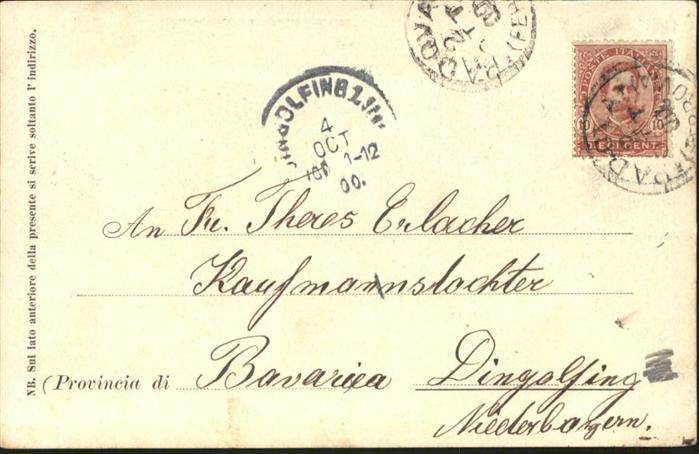 PADOVA
(FERROVIA)
POSTE ITALIANE
10
DIECI CENT.
DINGOLFING
4
OCT
1-12
00.
An Fr. Theres Erlacher
Kaufmannstochter
(Provincia di Bavariea Dingolfing
Niederbayern.
NB. Sul lato anteriore della presente si scrive soltanto l' indirizzo.